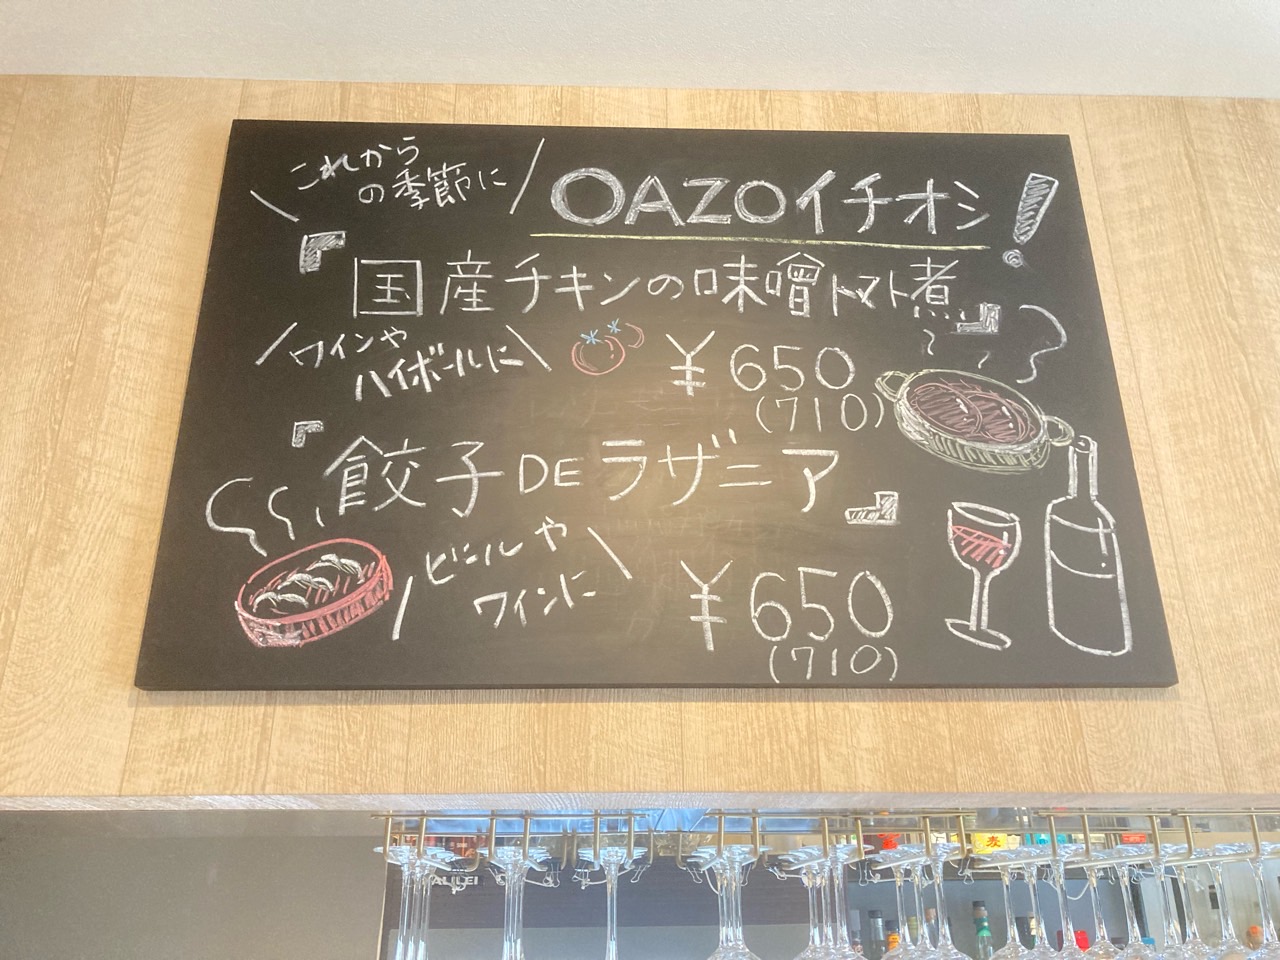 これから
の季節に
OAZOイチオシ!
『国産チキンの味噌トマト煮』
ワインや
ハイボールに
¥650
(710)
『餃子DEラザニア』
ビールや
ワインに
¥650
(710)
ALILEI
麦